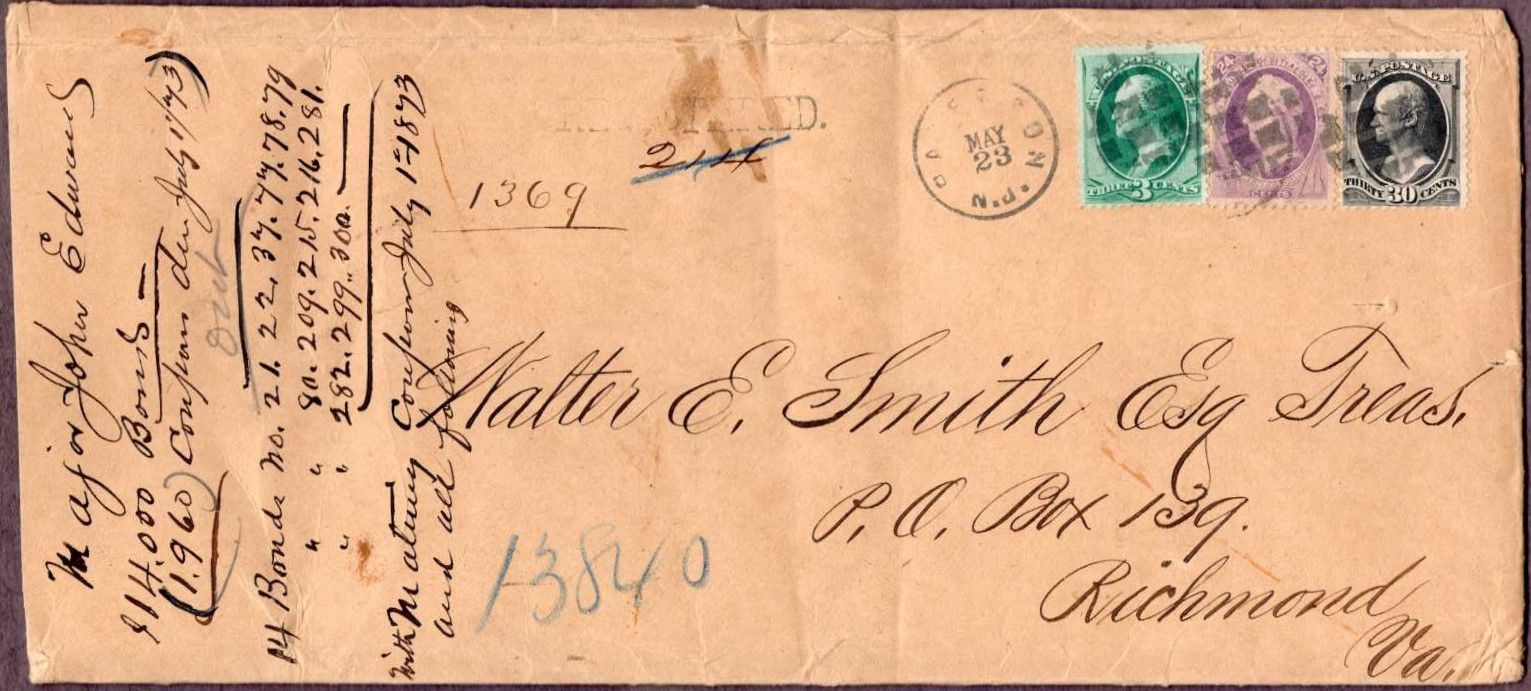 Major John Edwards
$14.000 Bonds
(1.960) Coupons due July 1/73)
14 Bonds No. 21. 22. 37. 77. 78. 79
" " 80. 209. 215. 216. 281.
" " 282. 299. 300.
with Maturing Coupon July 1st 1873
and all following
REGISTERED.
1369
13840
PATERSON
MAY
23
N.J.
U.S. POSTAGE
THREE 3 CENTS
24 24
CENTS
U.S. POSTAGE
THIRTY 30 CENTS
Walter E. Smith Esq Treas.
P. O. Box 139.
Richmond
Va.